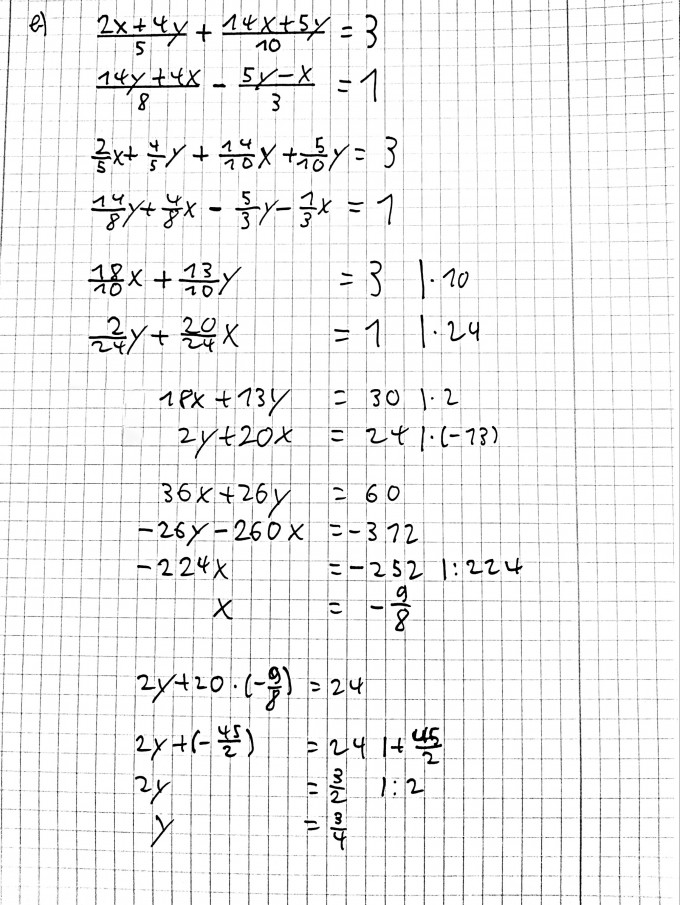 e) (2x+4y)/5 + (14x+5y)/10 = 3
(14y+4x)/8 - (5y-x)/3 = 1
2/5x+ 4/5y + 14/10x + 5/10y = 3
14/8y+ 4/8x - 5/3y - 1/3x = 1
18/10x + 13/10y = 3 |·10
2/24y + 20/24x = 1 |·24
18x+13y = 30 |·2
2y+20x = 24 |·(-13)
36x+26y = 60
-26y-260x = -312
-224x = -252 |:224
x = -9/8
2y+20·(-9/8) = 24
2x+(-45/2) = 24 |+45/2
2y = 3/2 |:2
y = 3/4